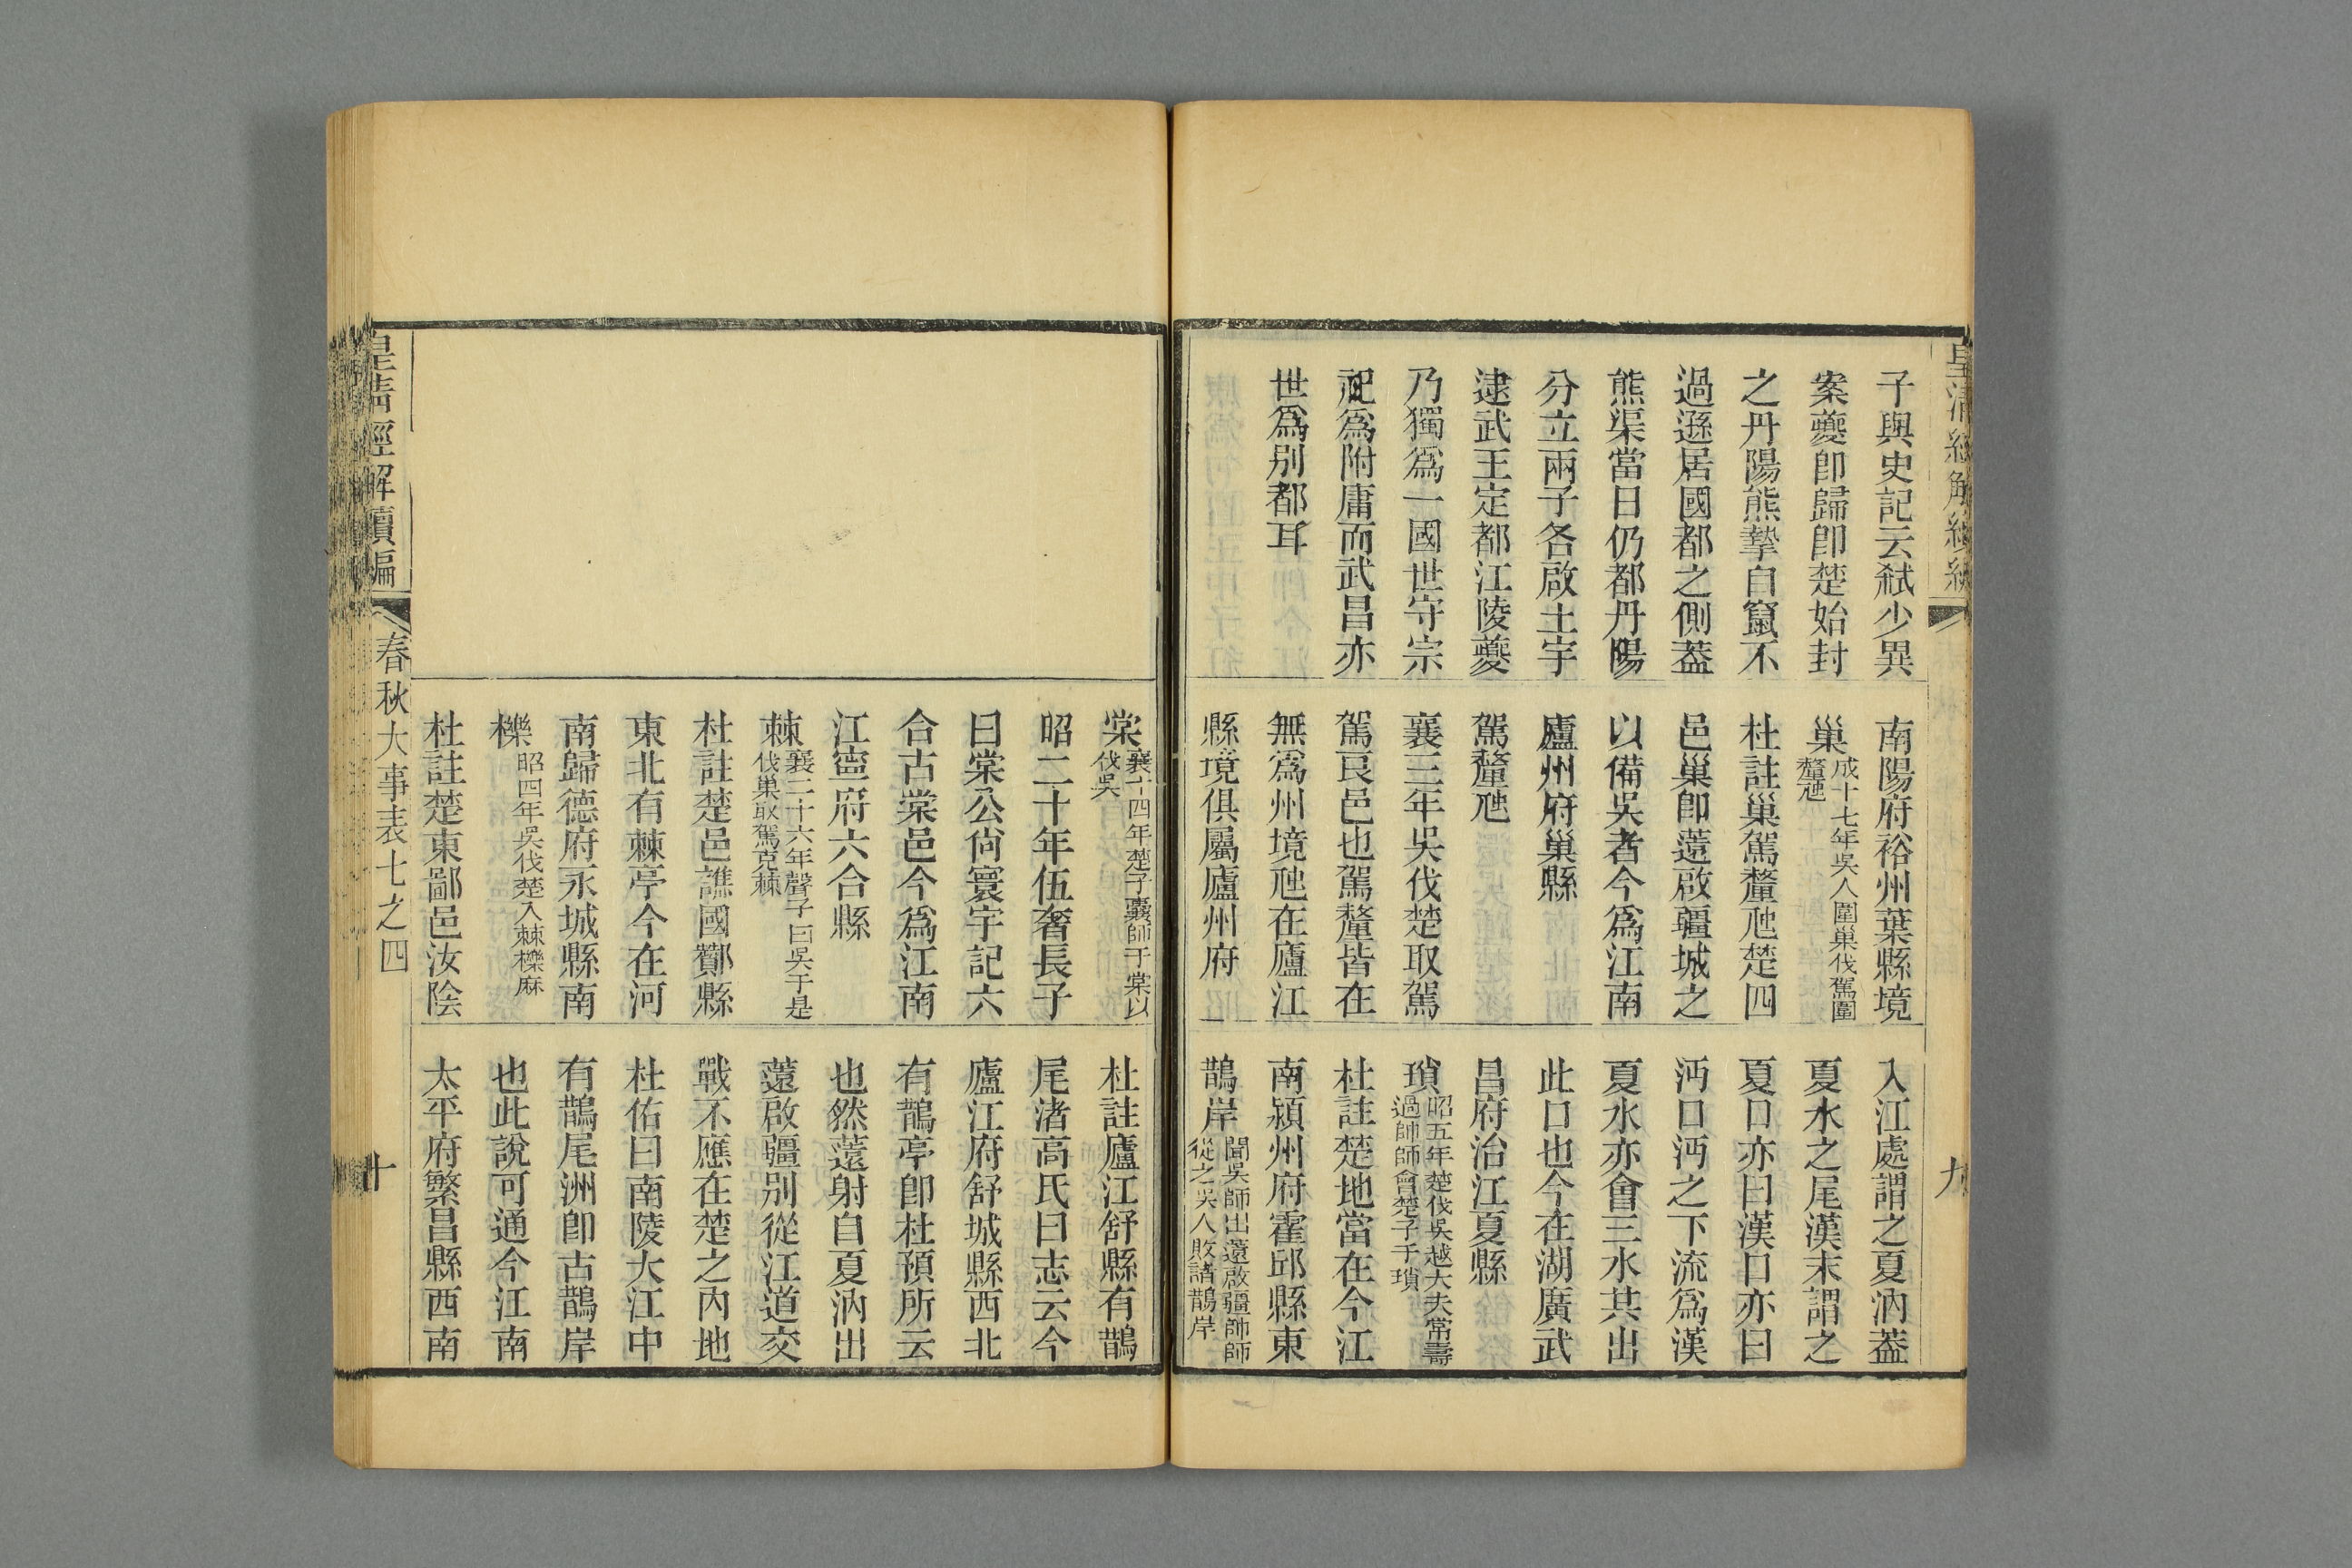 子與史記云弒少異
案夔卽歸卽楚始封
之丹陽熊摯自竄不
過遜居國都之側蓋
熊渠當日仍都丹陽
分立兩子各啟土宇
逮武王定都江陵夔
乃獨爲一國世守宗
祀爲附庸而武昌亦
世爲别都耳
南陽府裕州葉縣境
巢成十七年吳人圍巢伐駕圍
釐虺
杜註巢駕釐虺楚四
邑巢卽薳啟疆城之
以備吳者今爲江南
廬州府巢縣
駕釐虺
襄三年吳伐楚取駕
駕良邑也駕釐皆在
無爲州境虺在廬江
縣境俱屬廬州府
入江處謂之夏汭蓋
夏水之尾漢末謂之
夏口亦曰漢口亦曰
沔口沔之下流爲漢
夏水亦會三水共出
此口也今在湖廣武
昌府治江夏縣
瑣昭五年楚伐吳越大夫常壽
過帥師會楚子于瑣
杜註楚地當在今江
南潁州府霍邱縣東
鵲岸聞吳師出薳啟疆帥師
從之吳人敗諸鵲岸
九
棠襄十四年楚子囊師于棠以
伐吳
昭二十年伍奢長子
曰棠公尙寰宇記六
合古棠邑今爲江南
江寧府六合縣
棘襄二十六年聲子曰吳于是
伐巢取駕克棘
杜註楚邑譙國酇縣
東北有棘亭今在河
南歸德府永城縣南
櫟昭四年吳伐楚入棘櫟麻
杜註楚東鄙邑汝陰
杜註廬江舒縣有鵲
尾渚高氏曰志云今
廬江府舒城縣西北
有鵲亭卽杜預所云
也然薳射自夏汭出
薳啟疆别從江道交
戰不應在楚之內地
杜佑曰南陵大江中
有鵲尾洲卽古鵲岸
也此說可通今江南
太平府繁昌縣西南
皇清經解續編
春秋大事表七之四
十